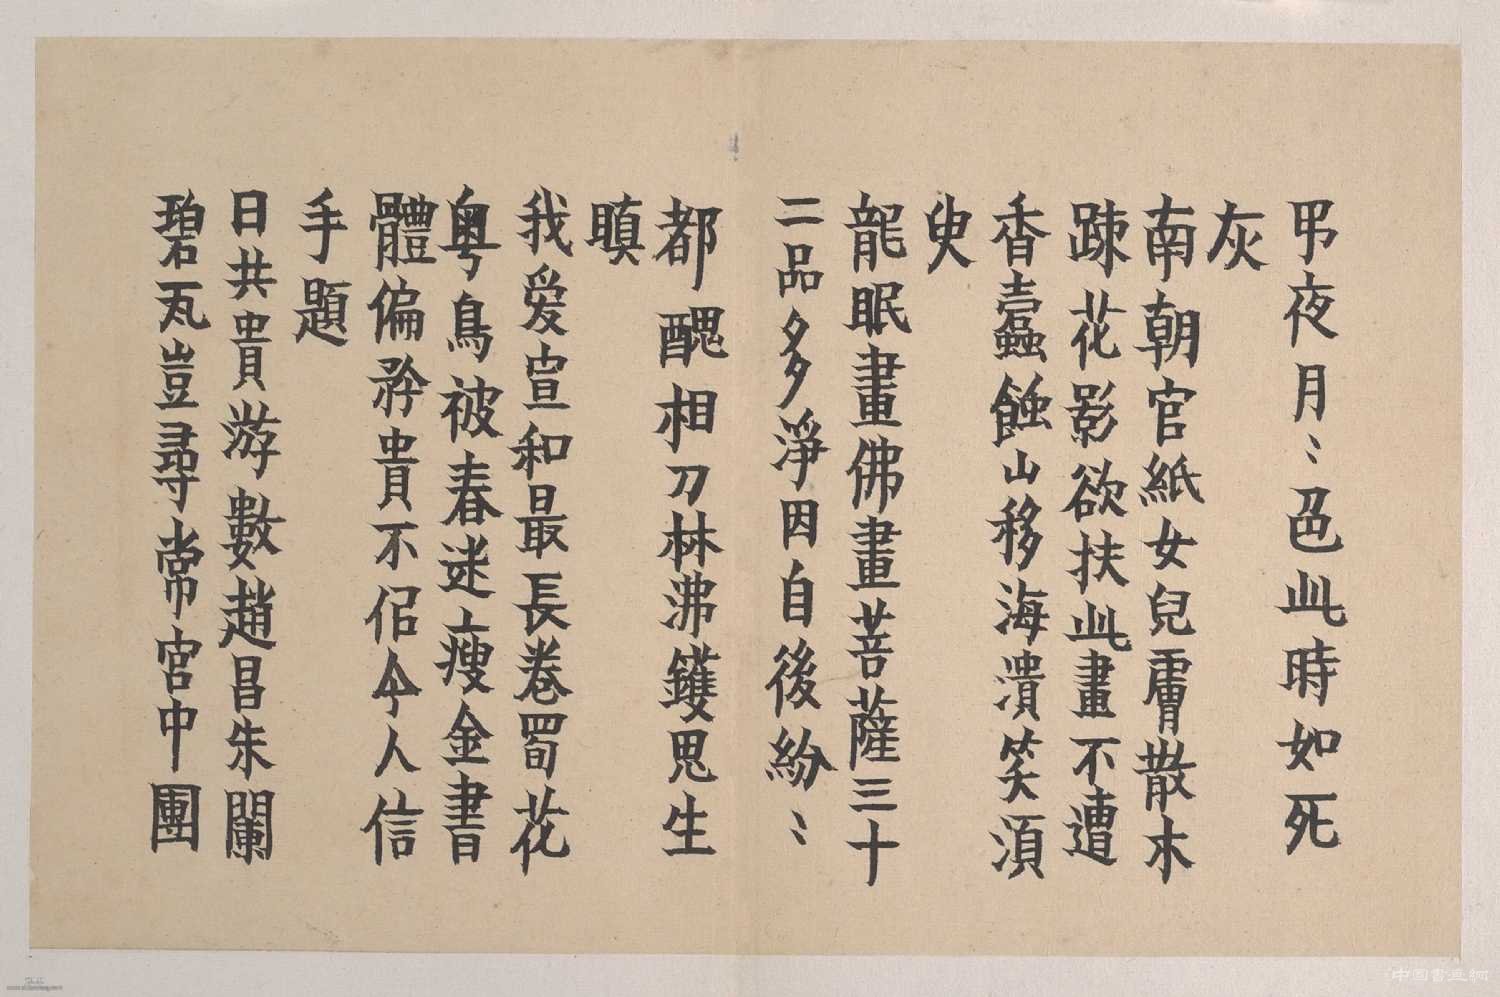 弔夜月〻色此時如死
灰
南朝官紙女兒膚散木
疎花影欲扶此畫不遭
香蠧蝕山移海潰笑須
臾
龍眠畫佛畫菩薩三十
二品多淨因自後紛〻
都醜相刀林沸鑊思生
瞋
我爱宣和最長卷蜀花
粤鳥被春迷瘦金書
體偏矜貴不佀今人信
手題
日共貴游數趙昌朱闌
碧瓦豈尋常宮中團
中国书画网